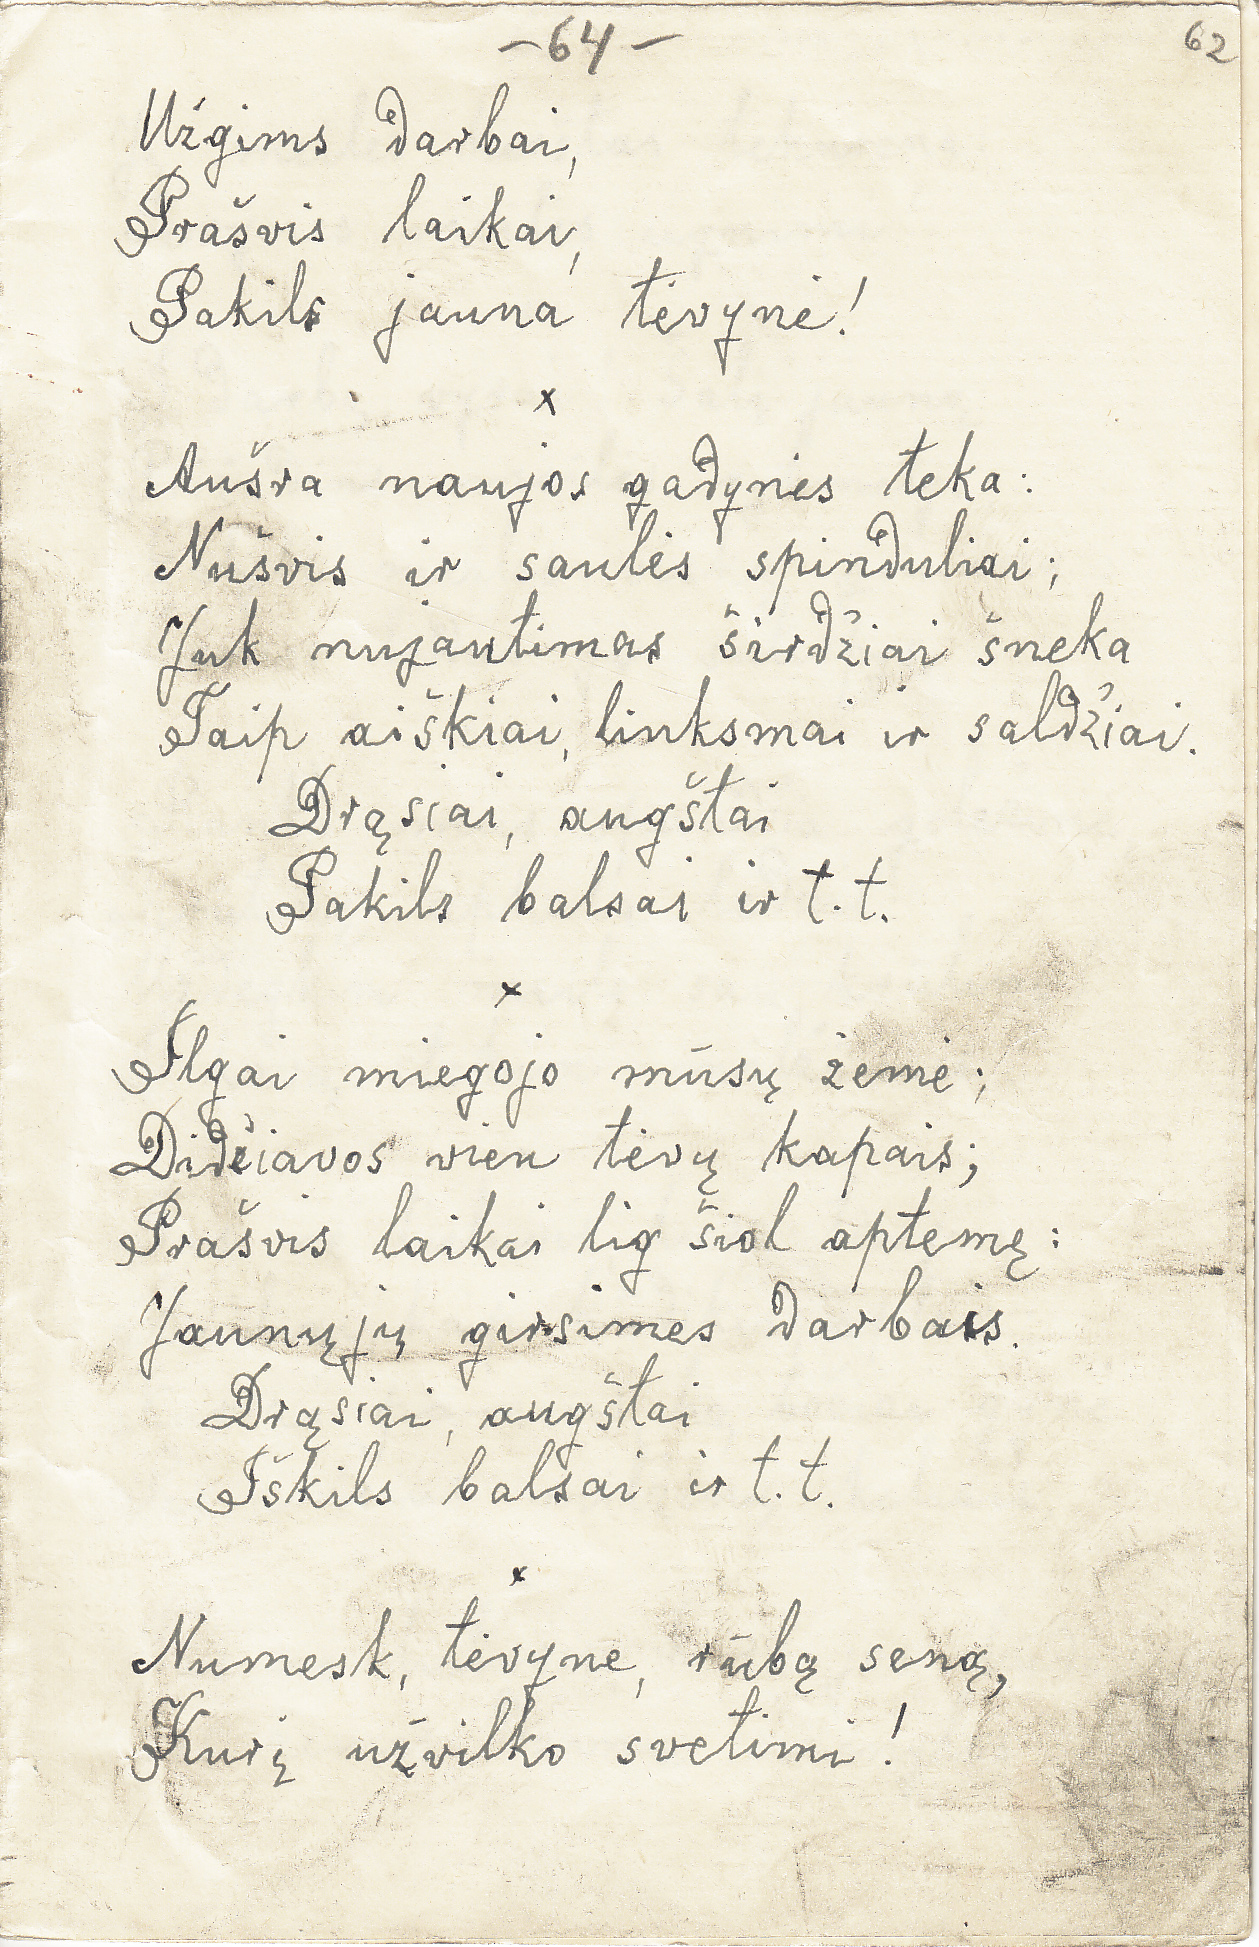 -64-
62
Užgims darbai,
Prašvis laikai,
Pakils jauna tėvynė!
x
Aušra naujos gadynės teka:
Nušvis ir saulės spinduliai;
Juk nujautimas širdžiai šneka
Taip aiškiai, linksmai ir saldžiai.
Drąsiai, augštai
Pakils balsai ir t.t.
x
Ilgai miegojo mūsų žemė;
Didėiavos vien tėvų kapais;
Prašvis laikai lig šiol aptemę:
Jaunųjų girsimes darbais.
Drąsiai, augštai
Iškils balsai ir t.t.
x
Numesk, tėvyne, rūbą seną,
Kurį užvilko svetimi!